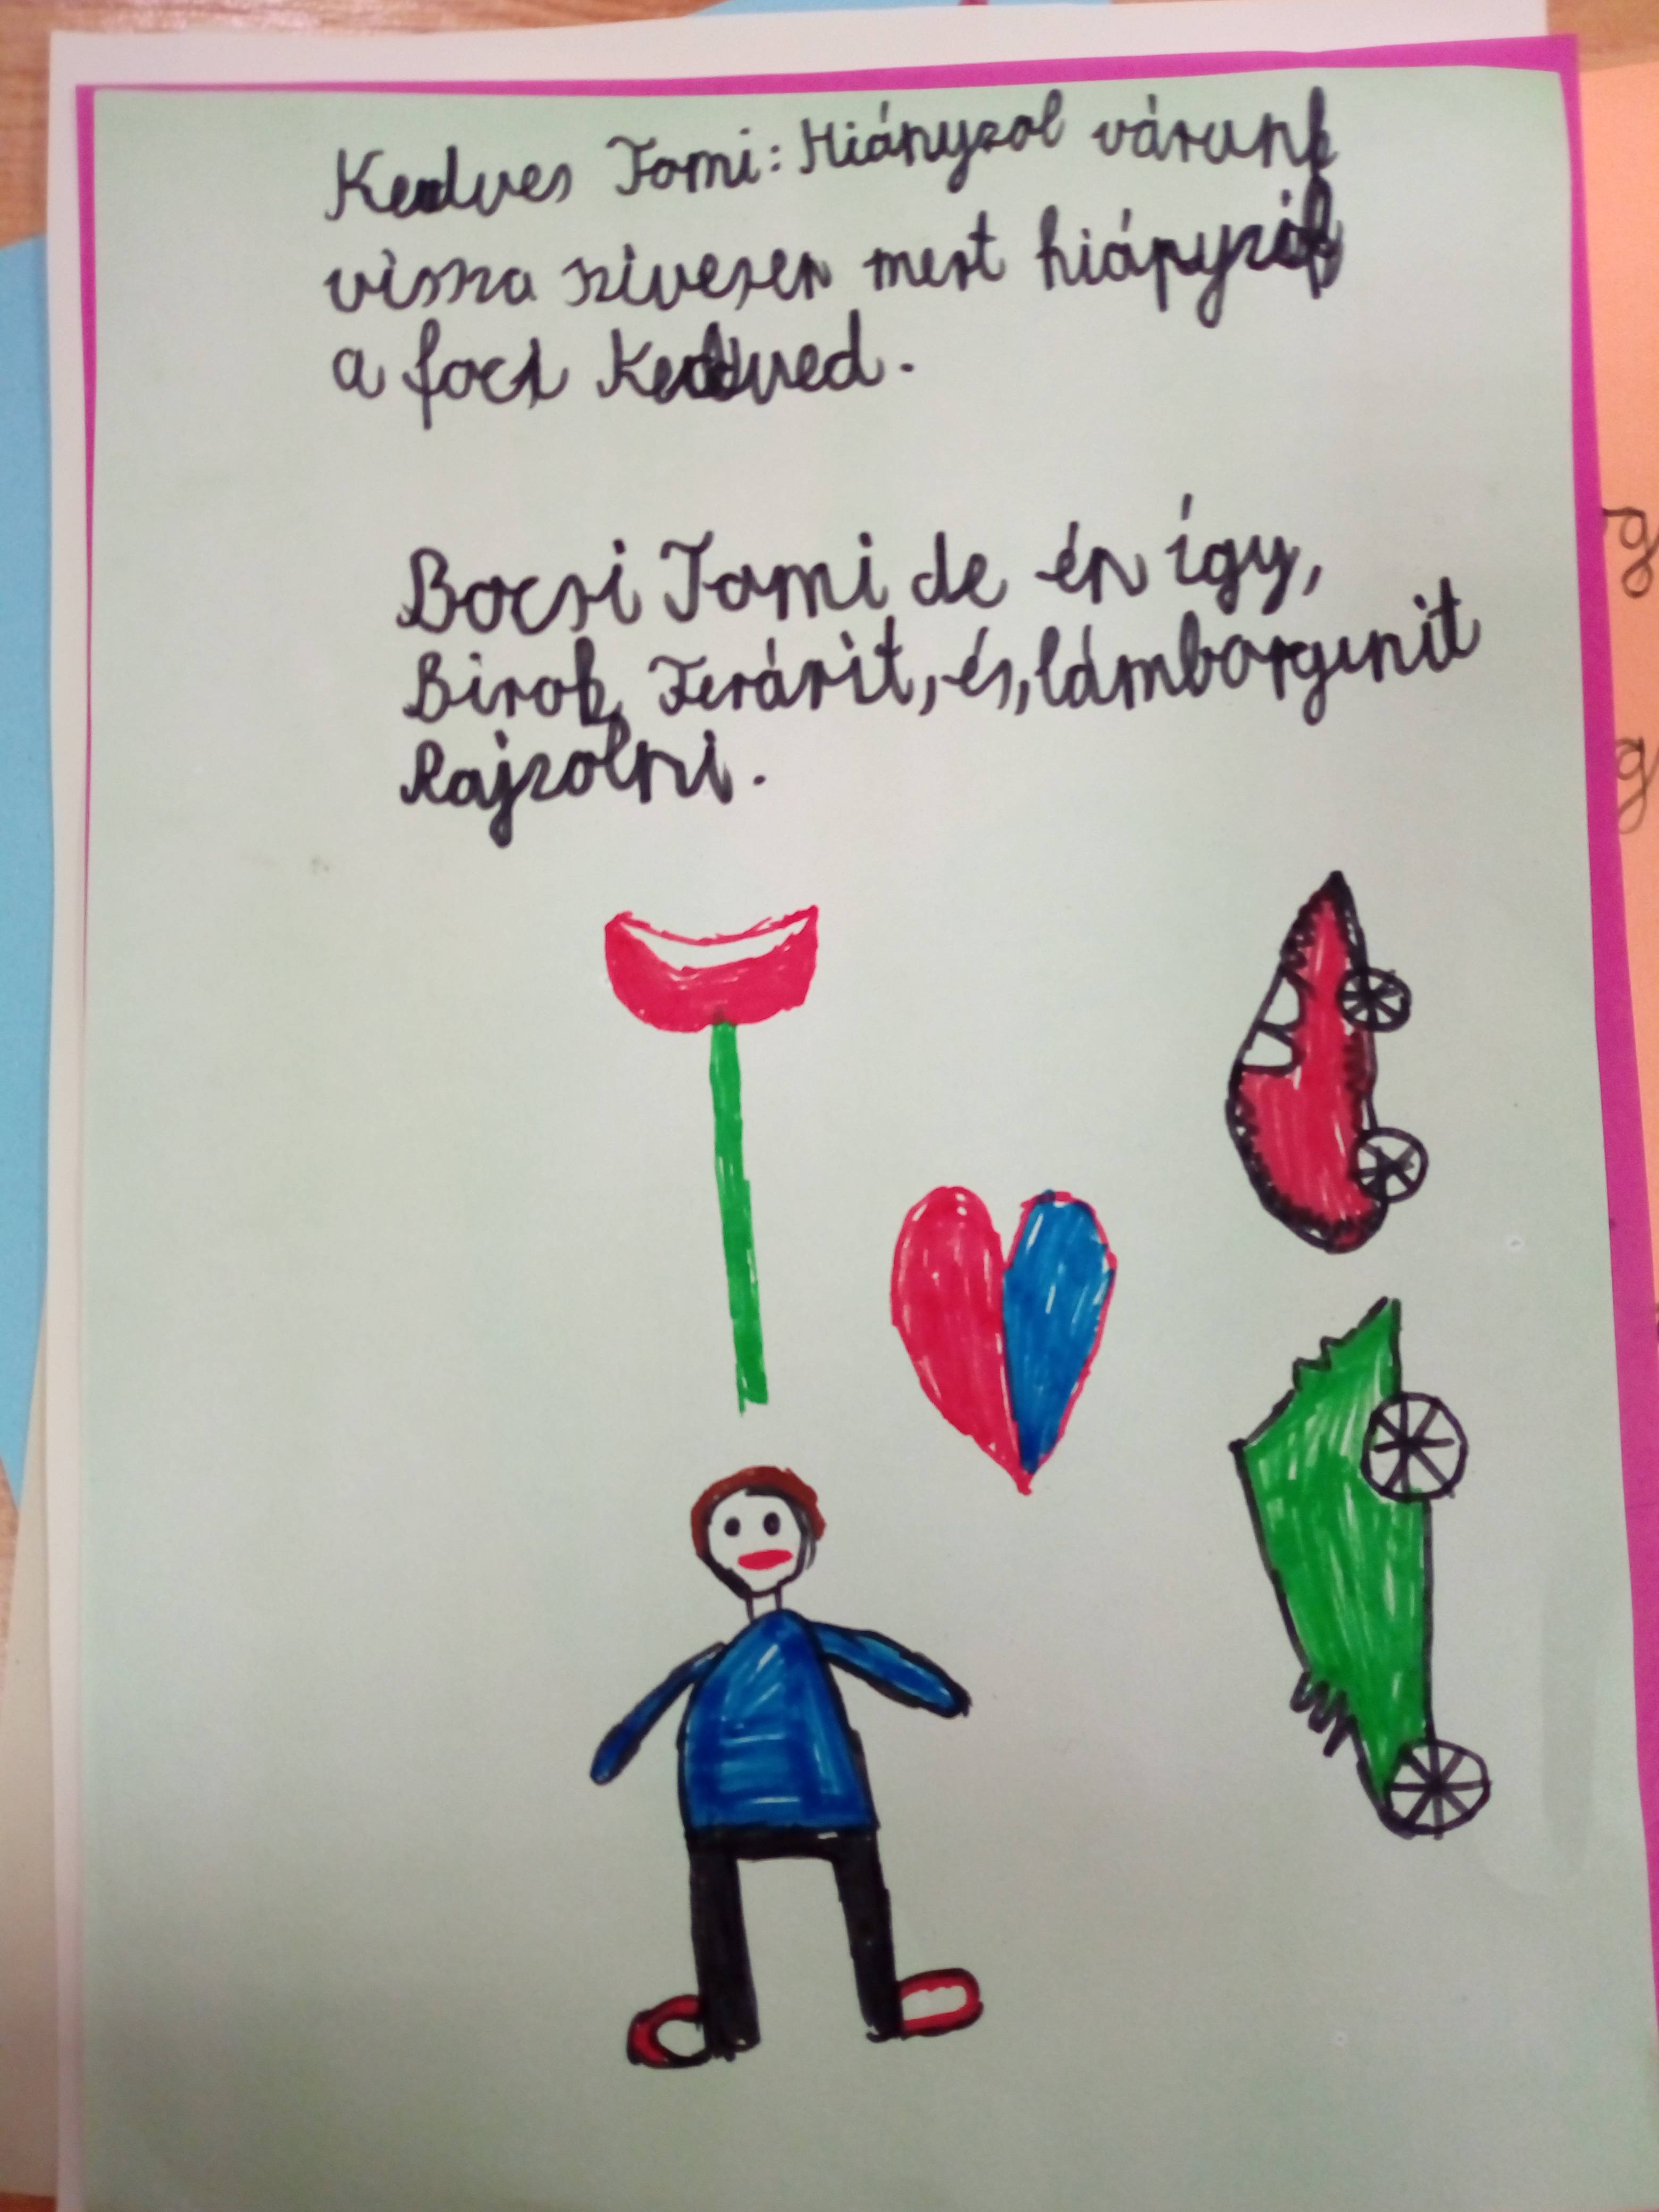 Kedves Tomi: Hiányzol várunk
vissza szivesen mert hiányzik
a foci Kedved.
Bocsi Tomi de én így,
Birok Ferárit, és, lámborginit
Rajzolni.